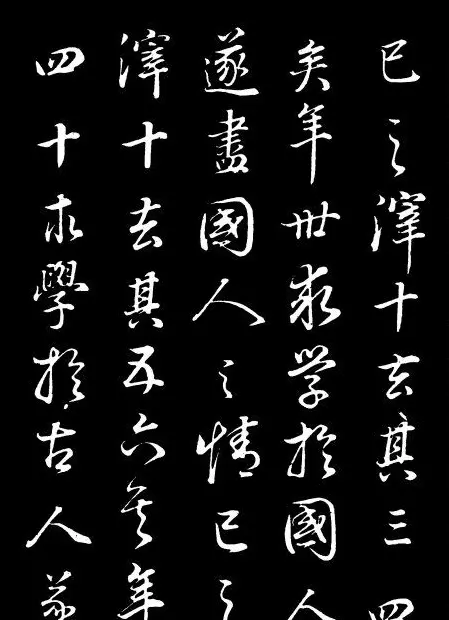 已之滓十去其三四
矣年卅求学於國人
遂盡國人之情已之
滓十去其五六矣年
四十求學於古人遂